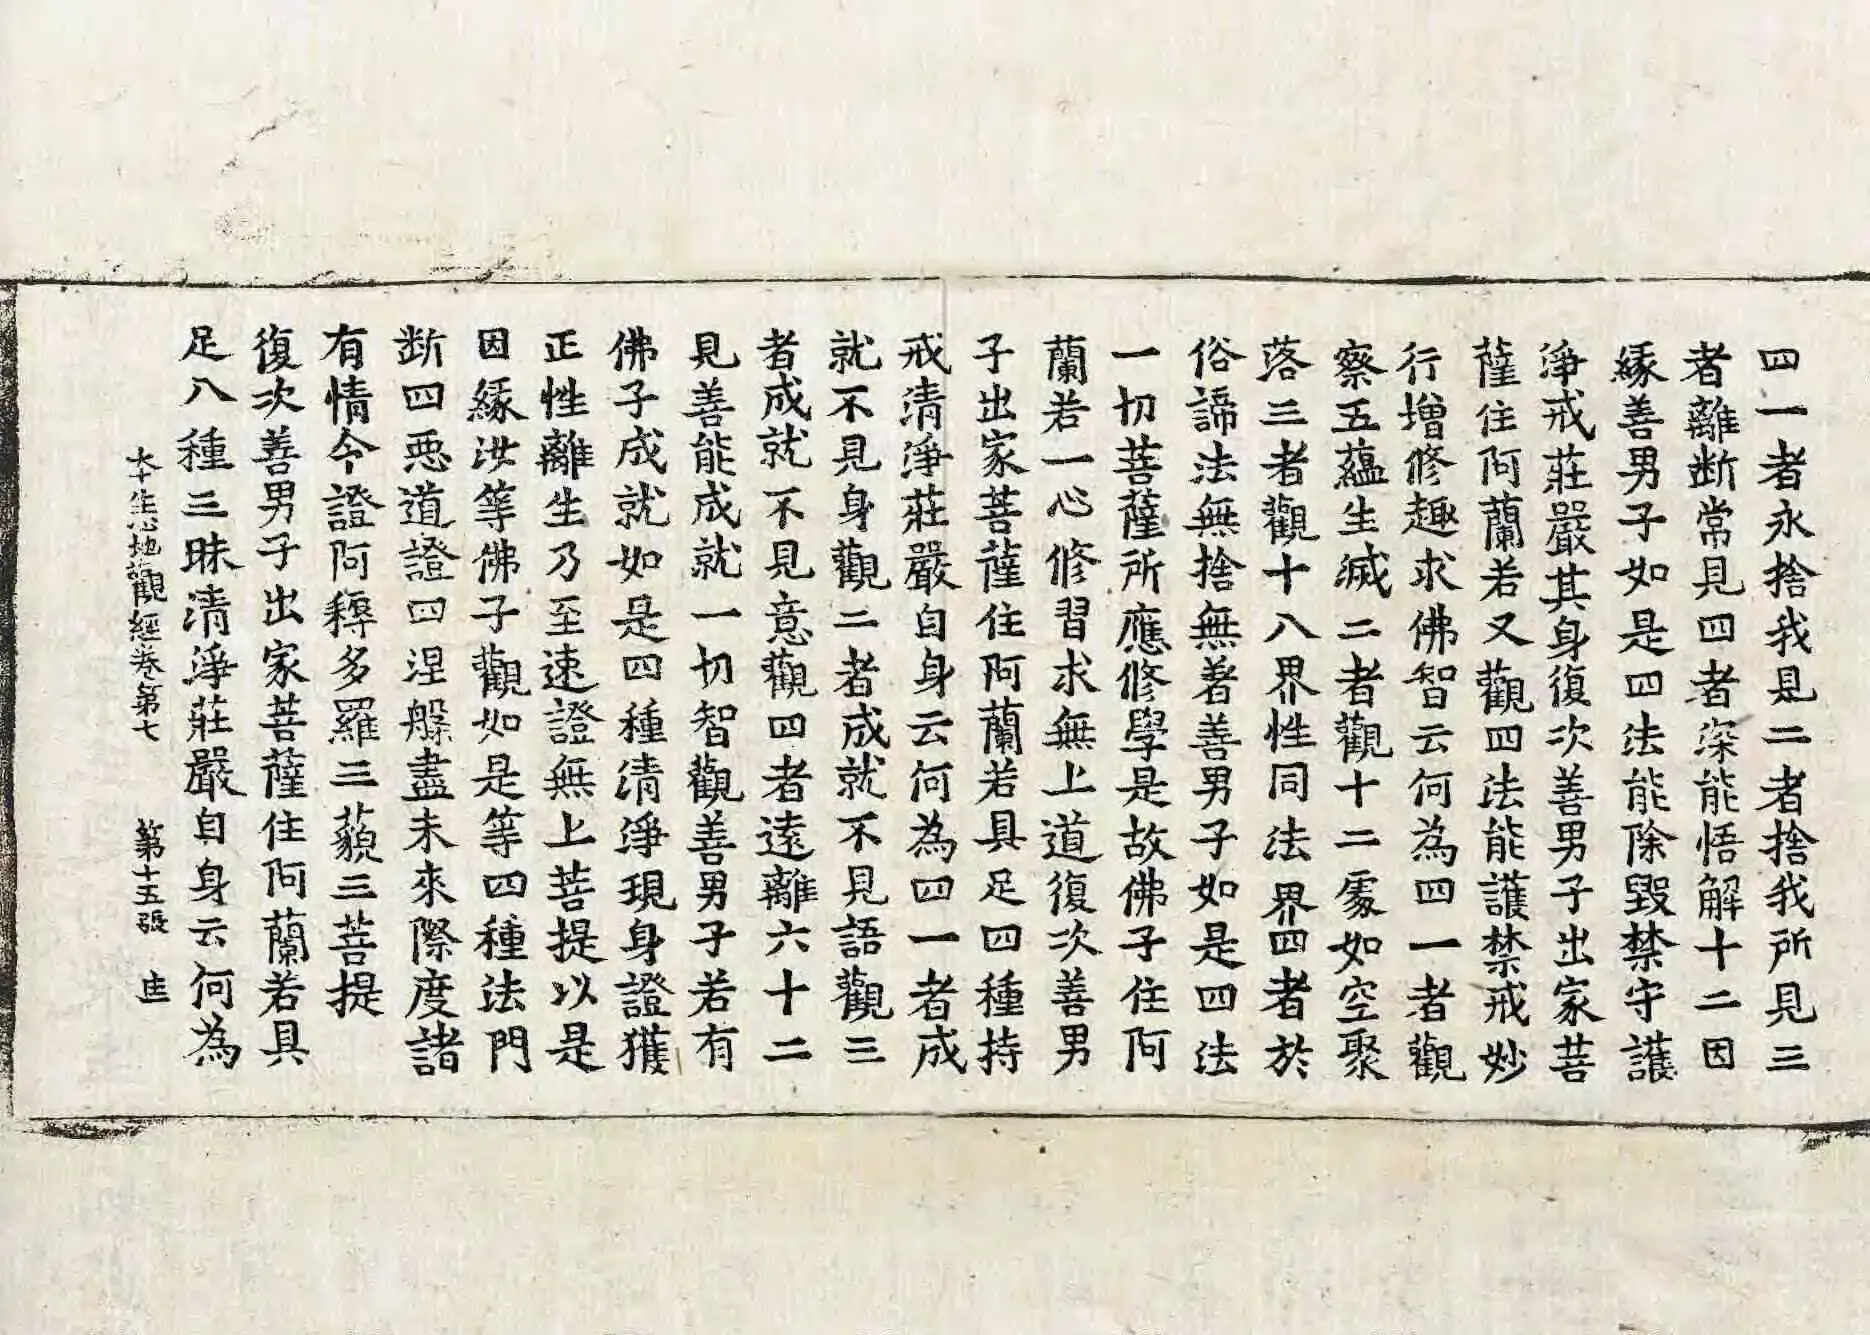 四一者永捨我見二者捨我所見三
者離断常見四者深能悟解十二因
緣善男子如是四法能除毀禁守護
淨戒莊嚴其身復次善男子出家菩
薩住阿蘭若又觀四法能護禁戒妙
行增修趣求佛智云何為四一者觀
察五蘊生滅二者觀十二處如空聚
落三者觀十八界性同法界四者於
俗諦法無捨無著善男子如是四法
一切菩薩所應修學是故佛子住阿
蘭若一心修習求無上道復次善男
子出家菩薩住阿蘭若具足四種持
戒清淨莊嚴自身云何為四一者成
就不見身觀二者成就不見語觀三
者成就不見意觀四者遠離六十二
見善能成就一切智觀善男子若有
佛子成就如是四種清淨現身證獲
正性離生乃至速證無上菩提以是
因緣汝等佛子觀如是等四種法門
断四惡道證四涅槃盡未來際度諸
有情今證阿耨多羅三藐三菩提
復次善男子出家菩薩住阿蘭若具
足八種三昧清淨莊嚴自身云何為
本生心地觀經卷第七 第十五張